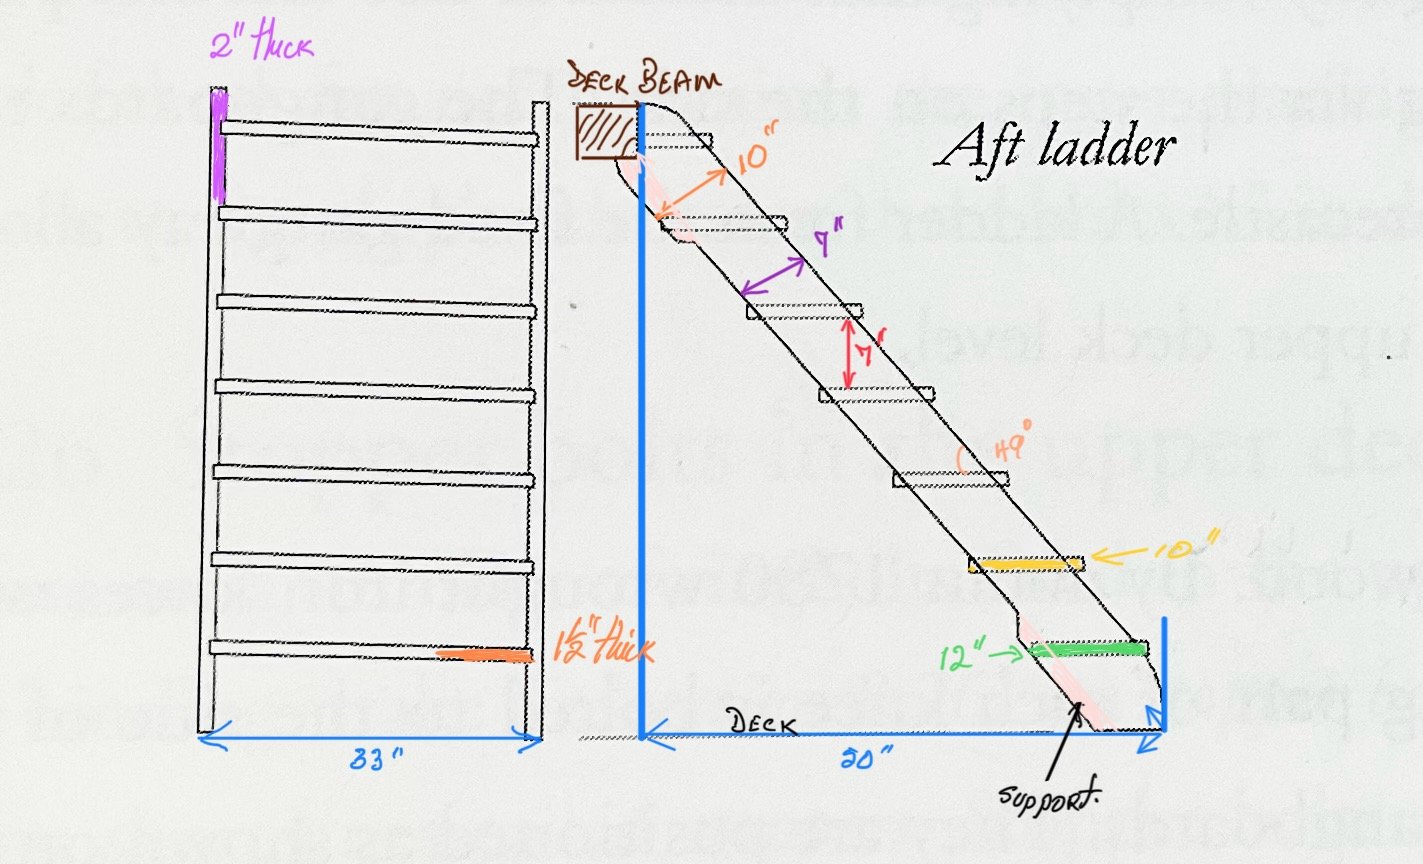 2" thick
DECK BEAM
Aft ladder
10"
7"
7"
49°
10"
1½" thick
12"
DECK
33"
50"
SUPPORT.